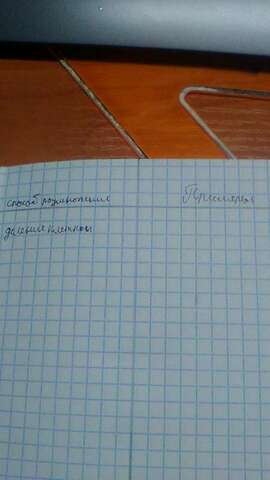 способ размножения Примеры
деление клетки